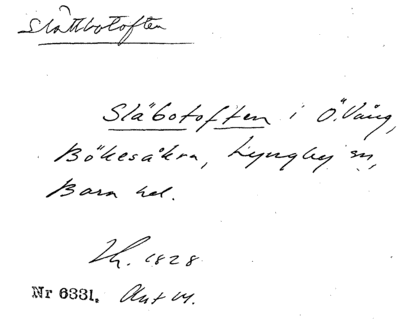 Slättbotoften
Släbotoften i Ö. Vång,
Bökesåkra, Lyngby sn,
Bara hd.
1828
Nr 6331. Akt 14.